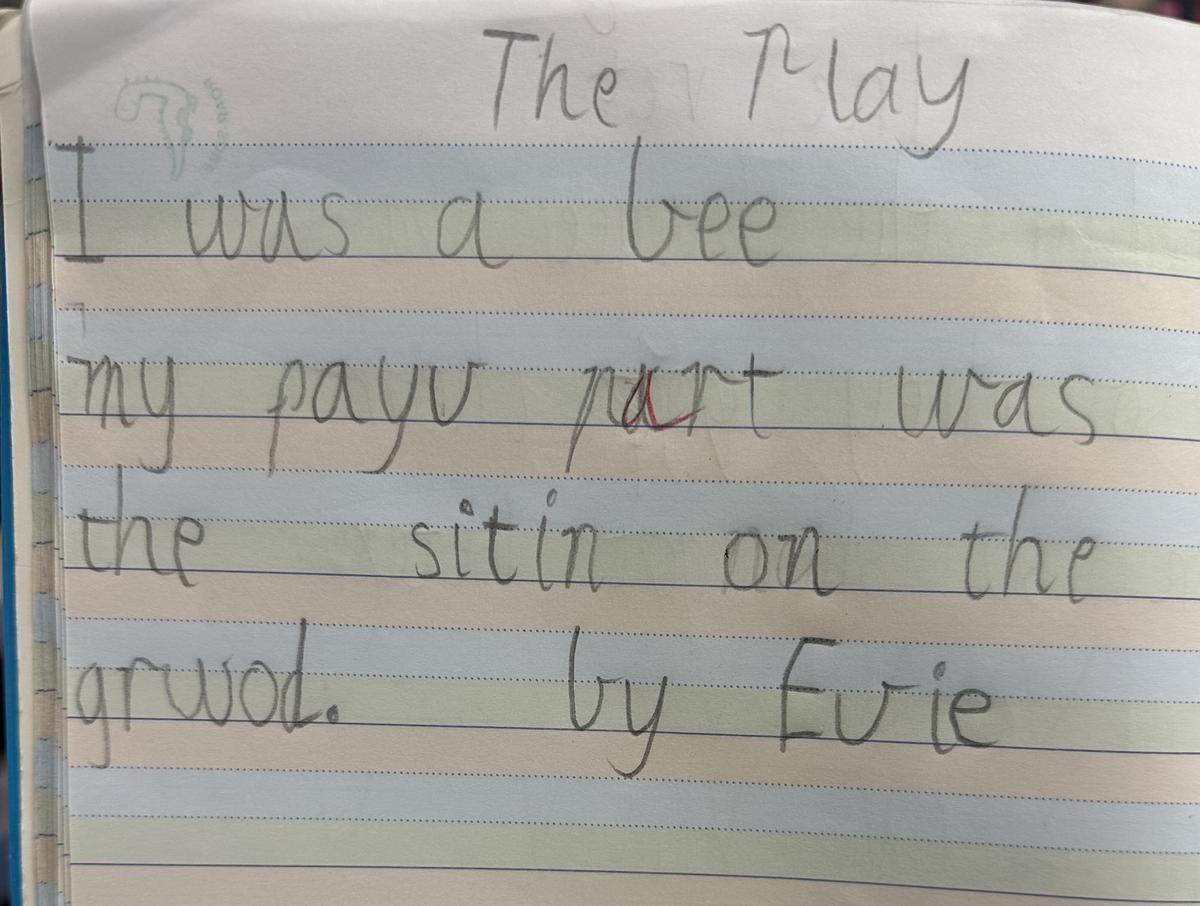 The Play
I was a bee
my payv part was
the sitin on the
grwod. by Evie